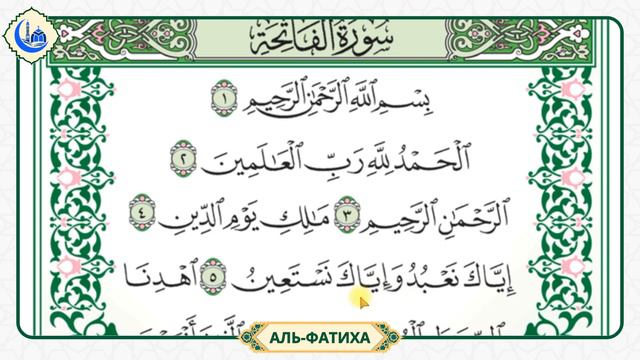 سُورَةُ الفَاتِحَةِ
بِسْمِ ٱللَّهِ ٱلرَّحْمَٰنِ ٱلرَّحِيمِ ١
ٱلْحَمْدُ لِلَّهِ رَبِّ ٱلْعَٰلَمِينَ ٢
ٱلرَّحْمَٰنِ ٱلرَّحِيمِ ٣ مَٰلِكِ يَوْمِ ٱلدِّينِ ٤
إِيَّاكَ نَعْبُدُ وَإِيَّاكَ نَسْتَعِينُ ٥ ٱهْدِنَا
АЛЬ-ФАТИХА